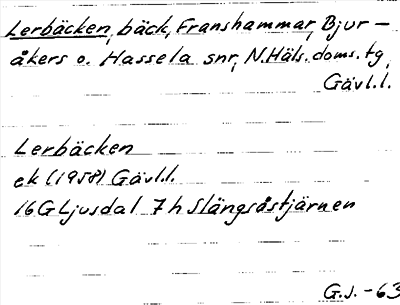 Lerbäcken, bäck, Franshammar, Bjur-
åkers o. Hassela snr, N.Häls. doms. tg,
Gävl.l.
Lerbäcken
ek (1958) Gävl.l.
16G Ljusdal 7h Slängsåstjärnen
G.J. -63